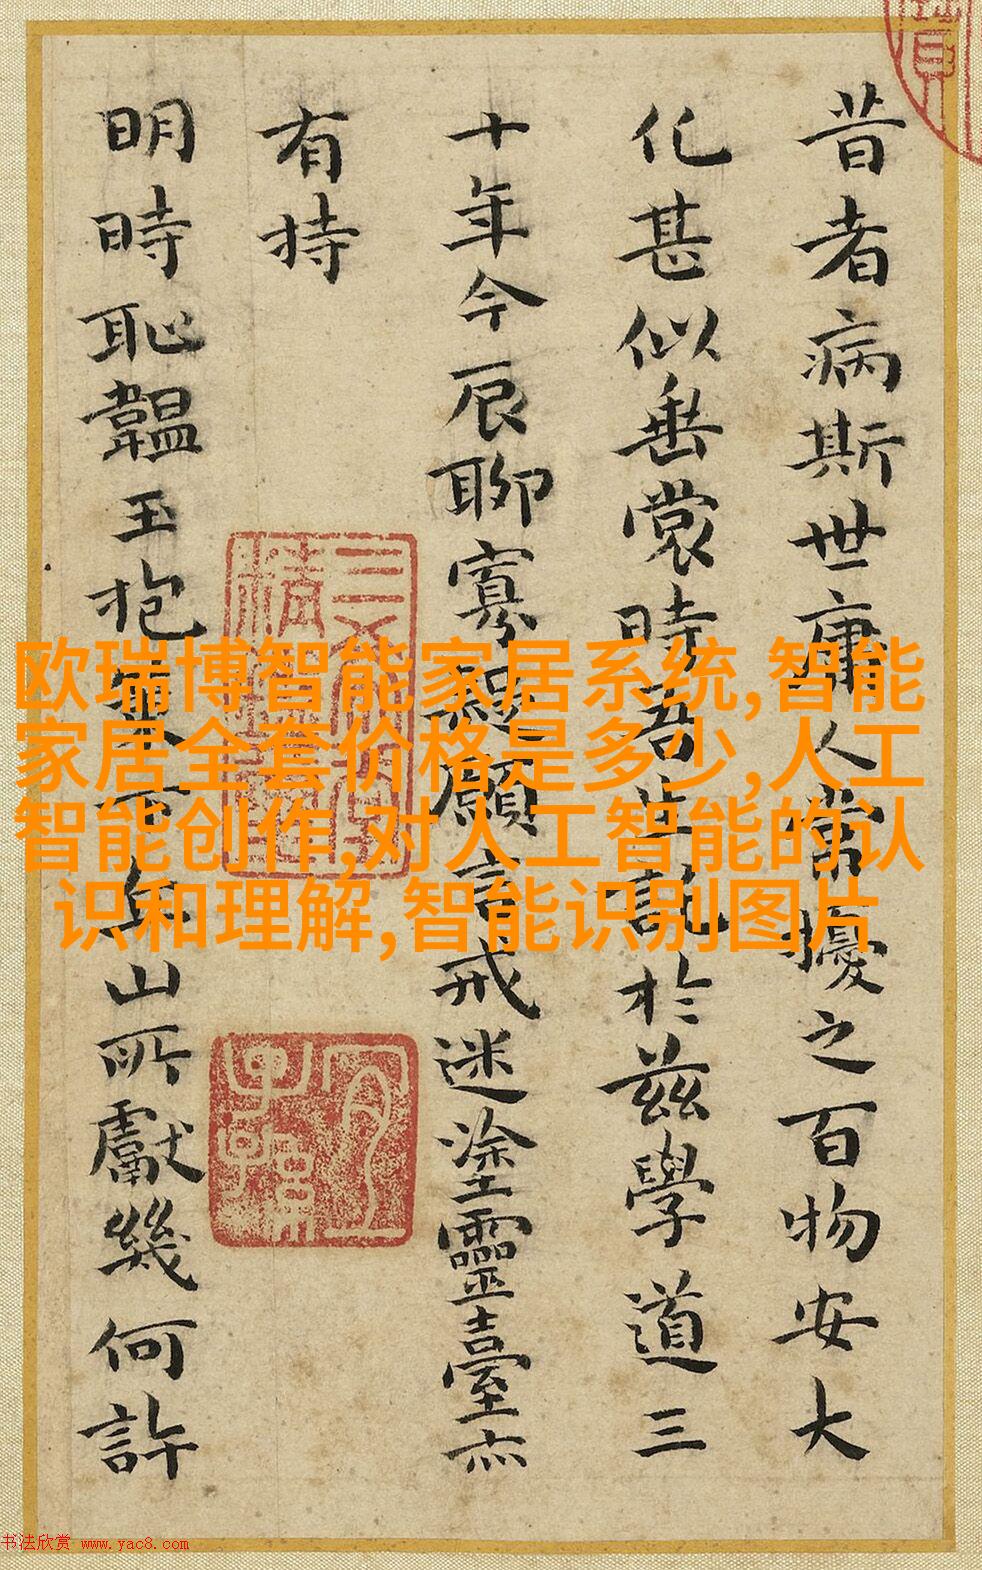 昔者病斯世庸人常擾之百物安大
化甚似垂裳時吾託於茲學道三
十年今辰聊寡願言戒迷塗靈臺亦
有持
明時恥韞玉抱山所獻幾何許
欧瑞博智能家居系统,智能
家居全套价格是多少,人工
智能创作,对人工智能的认
识和理解,智能识别图片
书法欣赏 www.yac8.com